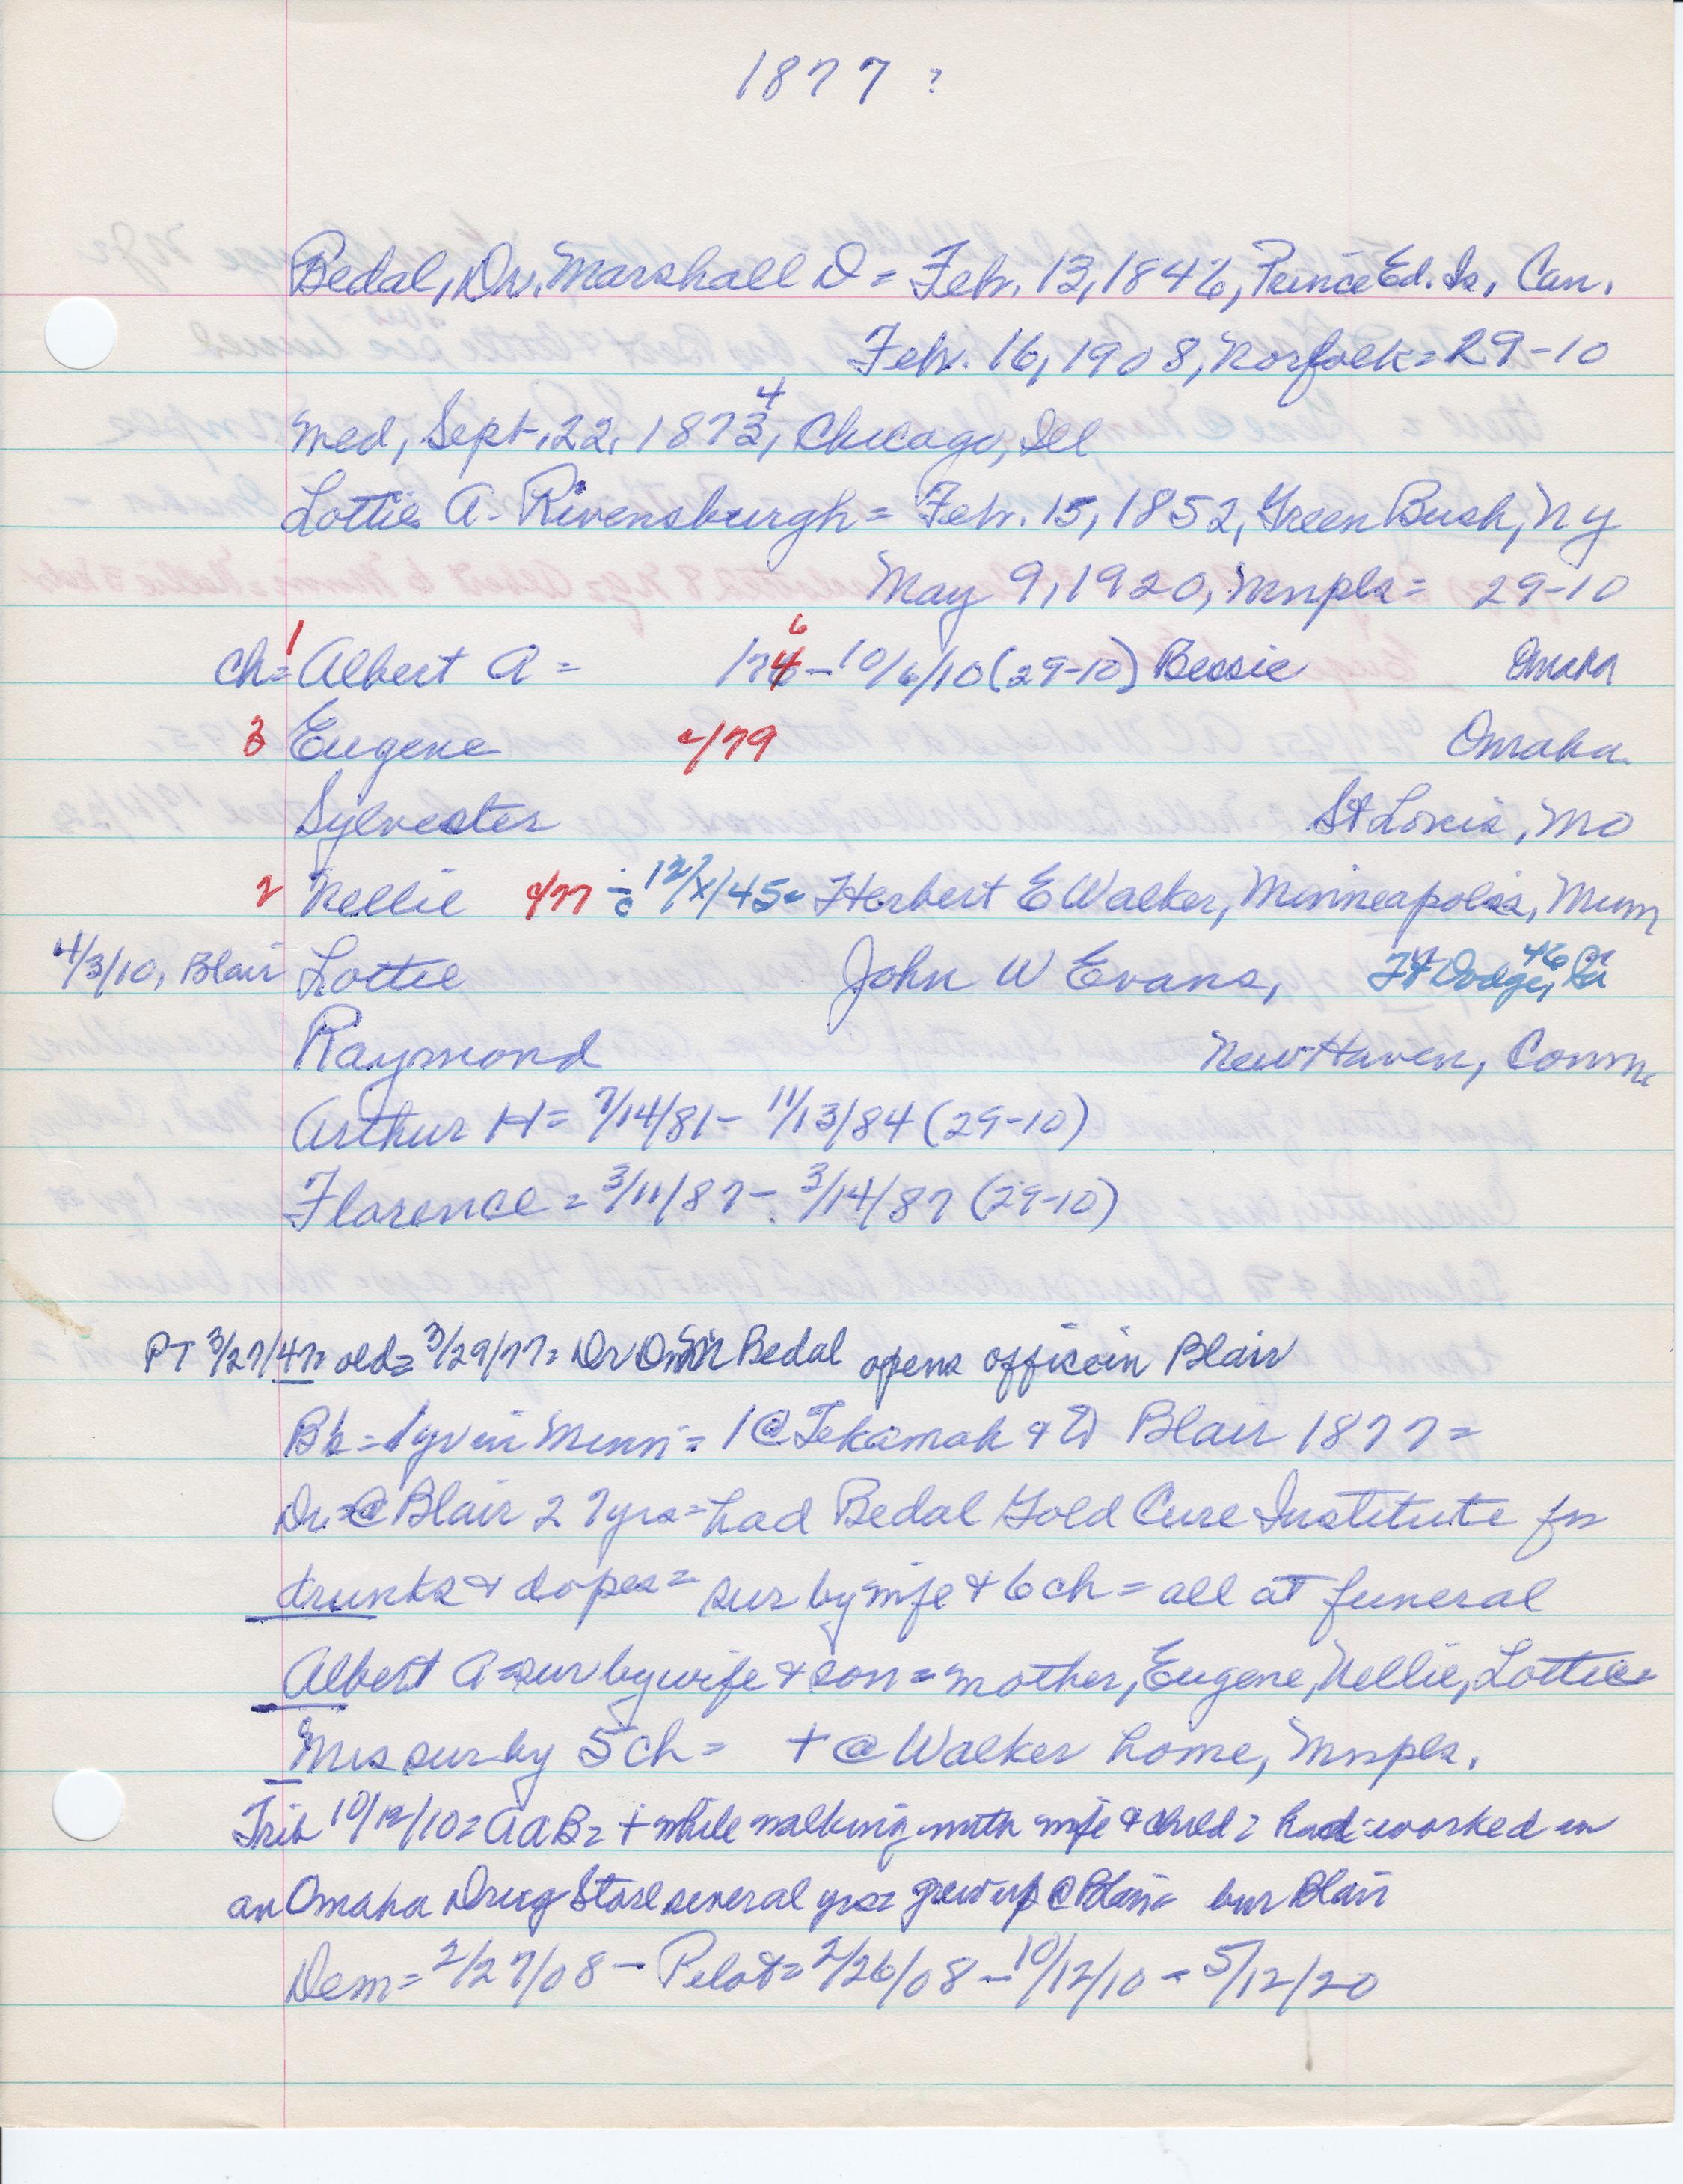 1877 ?
Bedal, Dr. Marshall D = Feb. 13, 1846, Prince Ed. Is, Can.
Feb. 16, 1908, Norfolk = 29-10
med, Sept. 22, 1873, Chicago, Ill
4
Lottie A. Rivensburgh = Feb. 15, 1852, Green Bush, NY
May 9, 1920, Mnpls = 29-10
ch = 1 Albert A = - 10/6/10 (29-10) Bessie Omaha
3 Eugene /79 Omaha
Sylvester St Louis, Mo
2 Nellie /77 12/x/45 = Herbert E Walker, Minneapolis, Minn
4/3/10, Blair Lottie John W Evans, Ft Dodge, Ia
46
Raymond New Haven, Conn
Arthur H = 7/14/81 - 11/13/84 (29-10)
Florence = 3/11/87 - 3/14/87 (29-10)
PT 3/27/47 = old = 3/29/77 = Dr Bedal opens office in Blair
= 1 yr in Minn = 1 @ Tekamah & Blair 1877 =
Dr = @ Blair 27 yrs = had Bedal Gold Cure Institute for
drunks & dopes = sur by wife & 6 ch = all at funeral
Albert A = sur by wife & son = mother, Eugene, Nellie, Lottie =
Mrs sur by 5 ch = + @ Walker home, Mnpls.
Trib 10/12/10 = AAB = + while walking with wife & child = had worked in
an Omaha Drug Store several yrs = grew up @ Blair = bur Blair
Dem = 2/27/08 - Pilot = 2/26/08 - 10/12/10 - 5/12/20